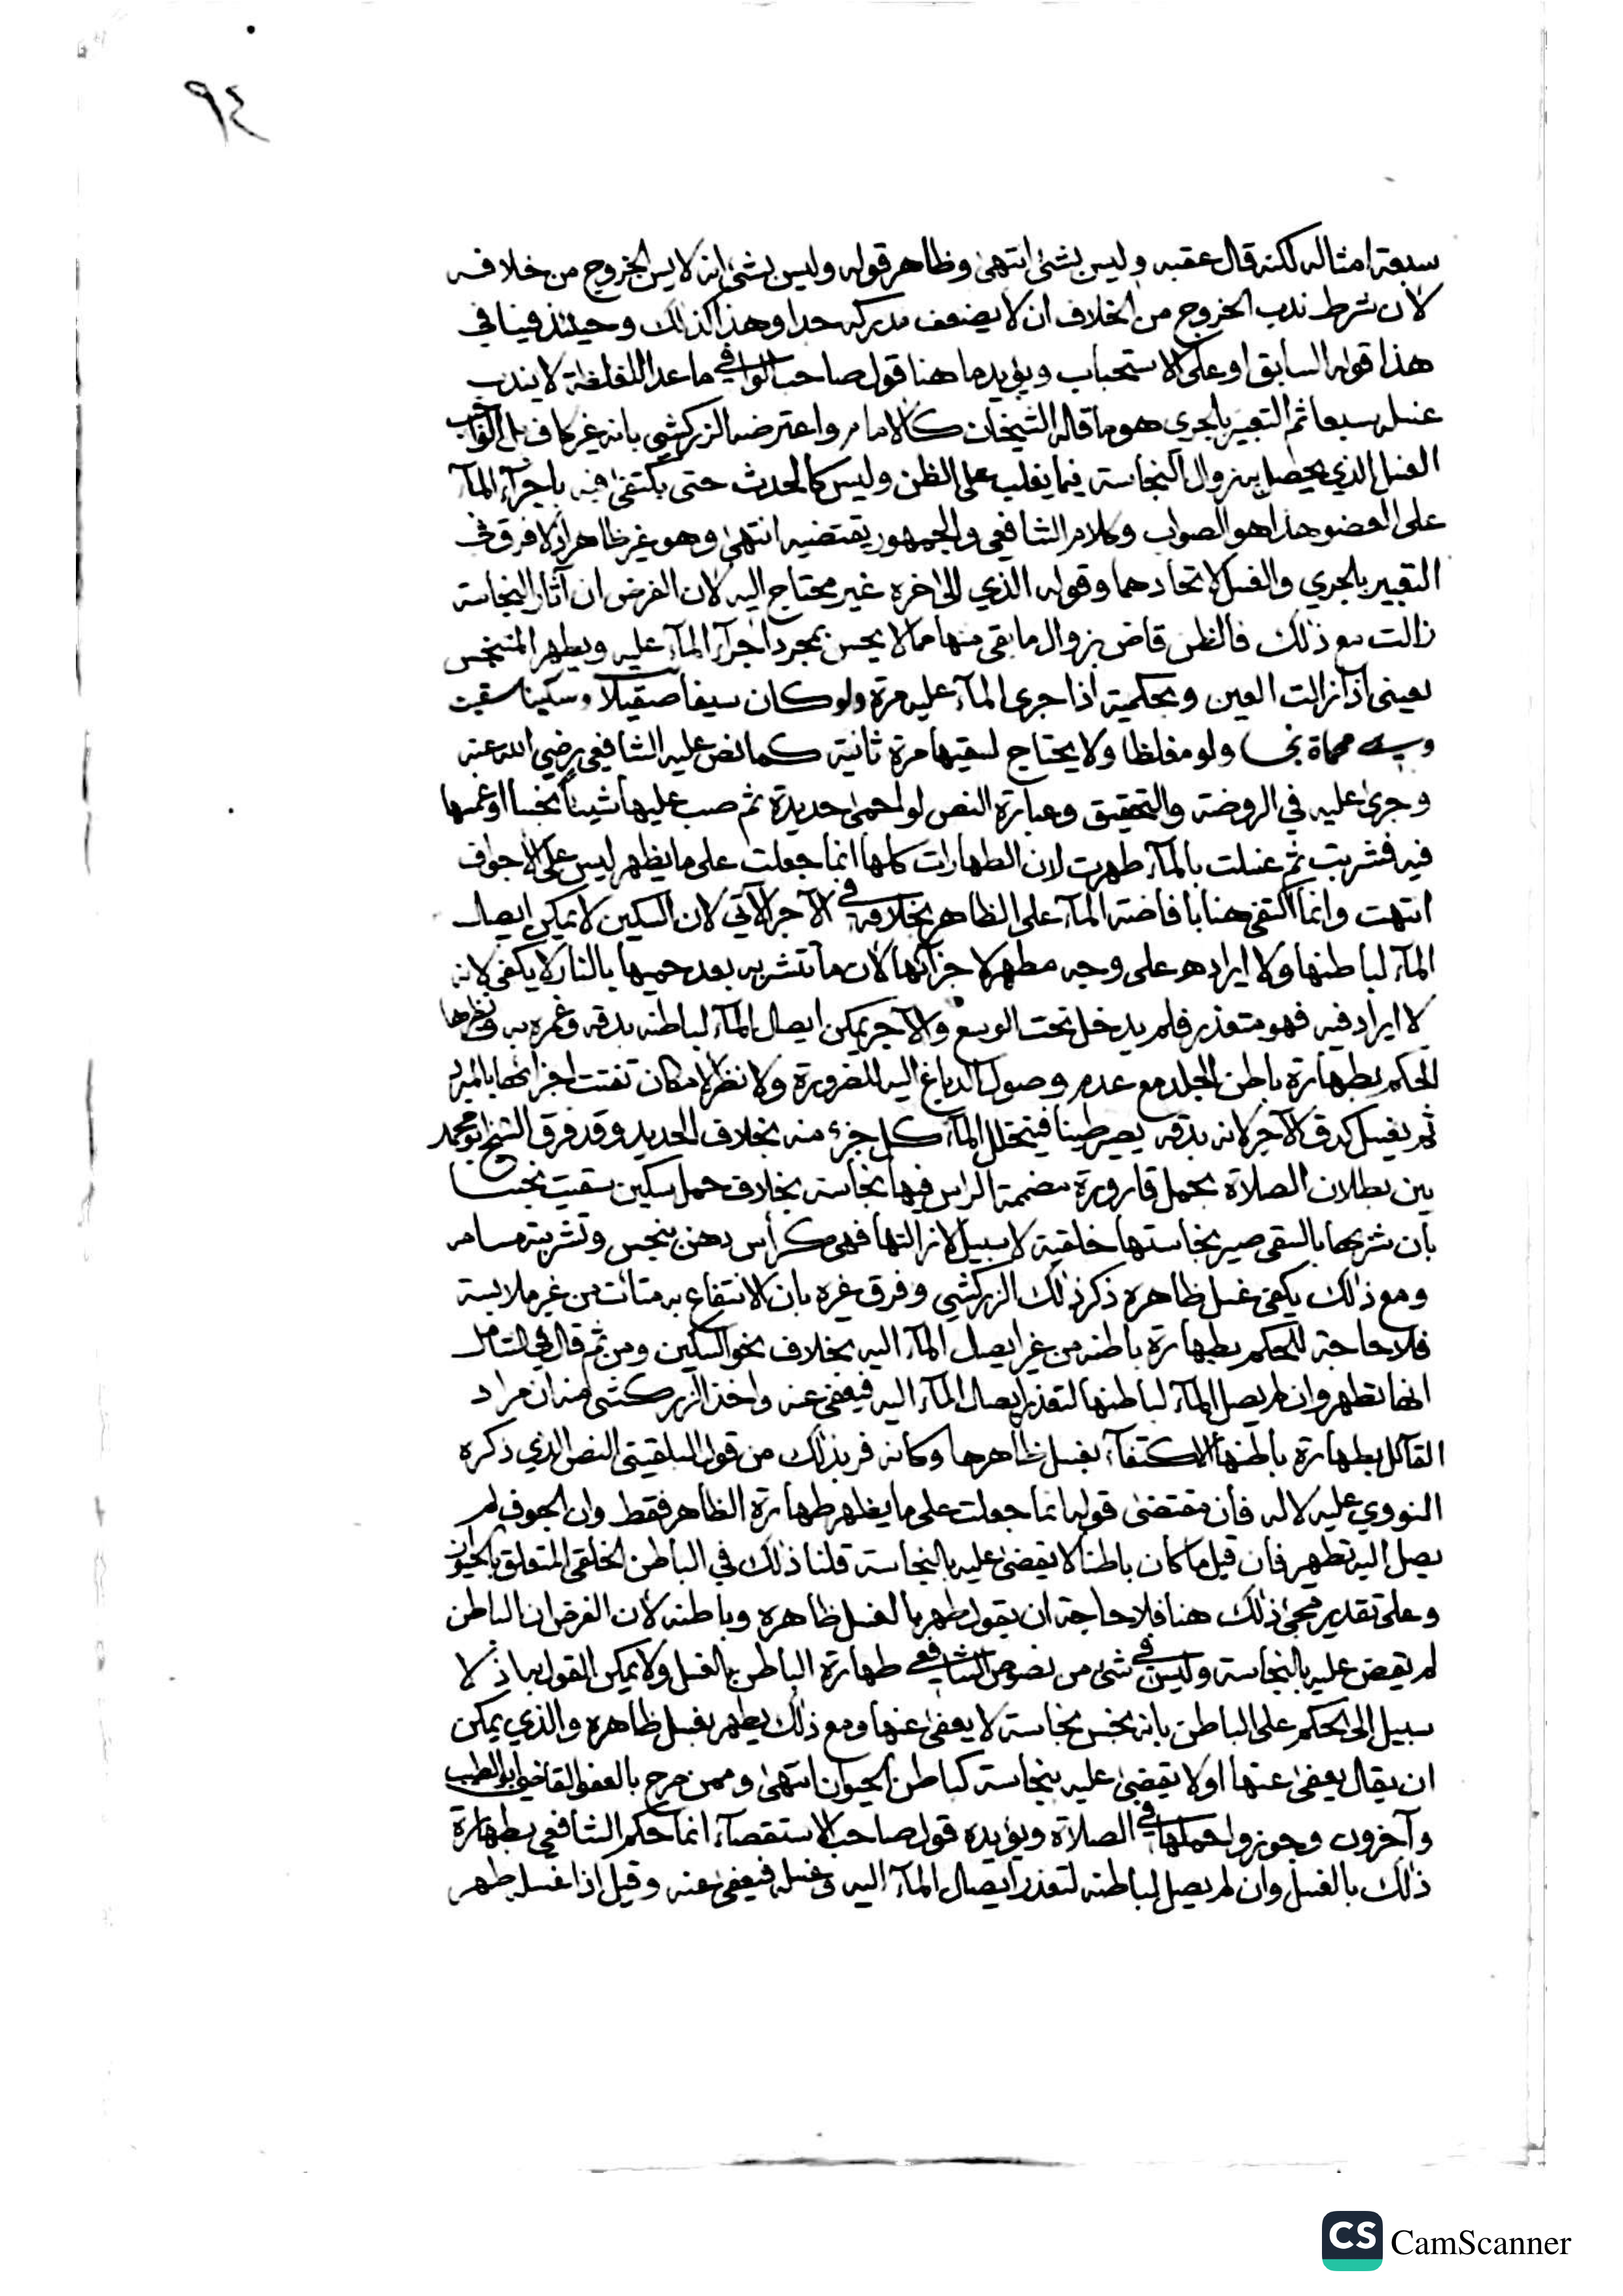 ٩٤
سبعة امثاله لكنه قال عقبه وليس بشئ انتهى وظاهر قوله وليس بشئ انه لا يسن الخروج من خلافه
لأن شرط ندب الخروج من الخلاف ان لا يضعف مدركه جدا وهذا كذلك وحينئذ فينافي
هذا قوله السابق او على الاستحباب ويؤيد ما هنا قول صاحب الوافي ما عدا المغلظة لا يندب
غسله سبعا ثم التعبير بالجري هو ما قاله الشيخان كالامام واعترضه الزركشي بانه غير كاف بل الواجب
الغسل الذي يحصل به زوال النجاسة فيما يغلب على الظن وليس كالحدث حتى يكتفى فيه باجرآء المآء
على العضو هذا هو الصواب وكلام الشافعي والجمهور يقتضيه انتهى وهو غير ظاهر اذ لا فرق في
التعبير بالجري والغسل لاتحادهما وقوله الذي الى اخره غير محتاج اليه لان الفرض ان آثار النجاسة
زالت مع ذلك فالظن قاض بزوال ما بقي منها مما لا يحس بمجرد اجرآء المآء عليه ويطهر المتنجس
بعيني اذا زالت العين وبحكمية اذا جرى المآء عليه مرة ولو كان سيفا صقيلا وسكينا سقيت
وهي محماة نجسا ولو مغلظا ولا يحتاج لسقيها مرة ثانية كما نص عليه الشافعي رضي الله عنه
وجرى عليه في الروضة والتحقيق وعبارة النص لو احمى حديدة ثم صب عليها شيئا نجسا او غمسها
فيه فشربت ثم غسلت بالمآء طهرت لان الطهارات كلها انما جعلت على ما يظهر ليس على الاجواف
انتهت وانما اكتفي هنا بافاضة المآء على الظاهر بخلافه في الآجر الآتي لان السكين لا يمكن ايصال
المآء لباطنها ولا ايراده على وجه مطهر لاجزآئها لأن ما تتشربه بعد حميها بالنار لا يكفي لانه
لا ايراد فيه فهو متعذر فلم يدخل تحت الوسع والآجر يمكن ايصال المآء لباطنه بدقه وغمره به ونظيرها
الحكم بطهارة باطن الجلد مع عدم وصول الدباغ اليه للضرورة ولا نظر لامكان تفتت اجزائها بالمبرد
ثم يغسل كدق الآجر لانه بدقه يصير طينا فيتخلل المآء كل جزء منه بخلاف الحديد وقد فرق الشيخ ابو محمد
بين بطلان الصلاة بحمل قارورة مضممة الراس فيها نجاسة بخلاف حمل سكين سقيت نجسا
بأن شربها بالسقي صير نجاستها خلقية لا سبيل لازالتها فهي كرأس دهن بنجس وتشربته مسامه
ومع ذلك يكفي غسل ظاهره ذكر ذلك الزركشي وفرق غيره بان الانتفاع به متأت من غير ملابسة
فلا حاجة للحكم بطهارة باطنه من غير ايصال المآء اليه بخلاف نحو السكين ومن ثم قال في الشامل
انها تطهر وان لم يصل المآء لباطنها لتعذر ايصال المآء اليه فيعفى عنه واخذ الزركشي منه ان مراد
القآئل بطهارة باطنها الاكتفآء بغسل ظاهرها وكانه فر بذلك من قول البلقيني النص الذي ذكره
النووي عليه لا له فأن مقتضى قوله انما جعلت على ما يظهر طهارة الظاهر فقط وان الجوف لم
يصل اليه تطهير فان قيل ما كان باطنا لا يقضى عليه بالنجاسة قلنا ذلك في الباطن الخلقي المتعلق بالحيوان
وعلى تقدير مجئ ذلك هنا فلا حاجة ان يقول طهر بالغسل ظاهره وباطنه لأن الفرض ان الباطن
لم يقض عليه بالنجاسة وليس في شئ من نصوص الشافعي طهارة الباطن بالغسل ولا يمكن القول بها اذ لا
سبيل الى الحكم على الباطن بانه نجس نجاسة لا يعفى عنها ومع ذلك يطهر بغسل ظاهره والذي يمكن
ان يقال يعفى عنها او لا يقضى عليه بنجاسة كباطن الحيوان انتهى وممن صرح بالعفو القاضي ابو الطيب
وآخرون وجوزوا حملها في الصلاة ويؤيده قول صاحب الاستقصآء انما حكم الشافعي بطهارة
ذلك بالغسل وان لم يصل لباطنه لتعذر ايصال المآء اليه وغسله فيعفى عنه وقيل اذا غسل طهر
CS CamScanner